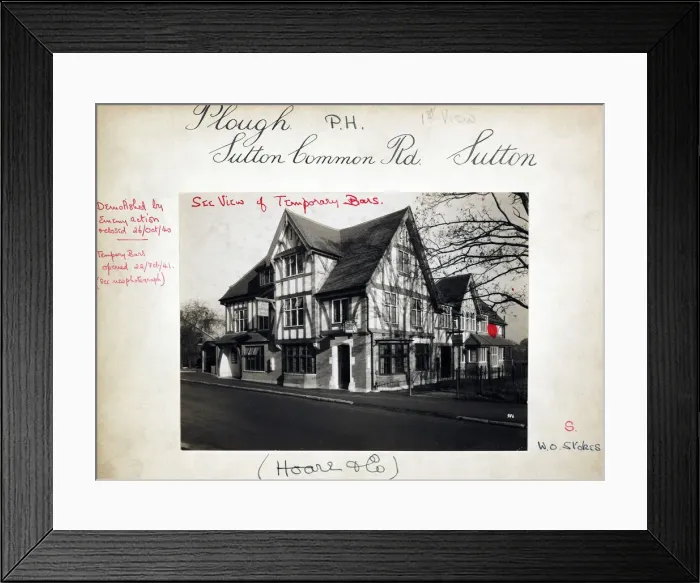 Plough P.H. 1st View
Sutton Common Rd. Sutton
See View of Temporary Bars.
Demolished by
Enemy action
closed 26/Oct/40
Tempory Bars
opened 22/Feb/41.
(See new photograph)
S.
W.O. Stokes
(Hoare & Co)